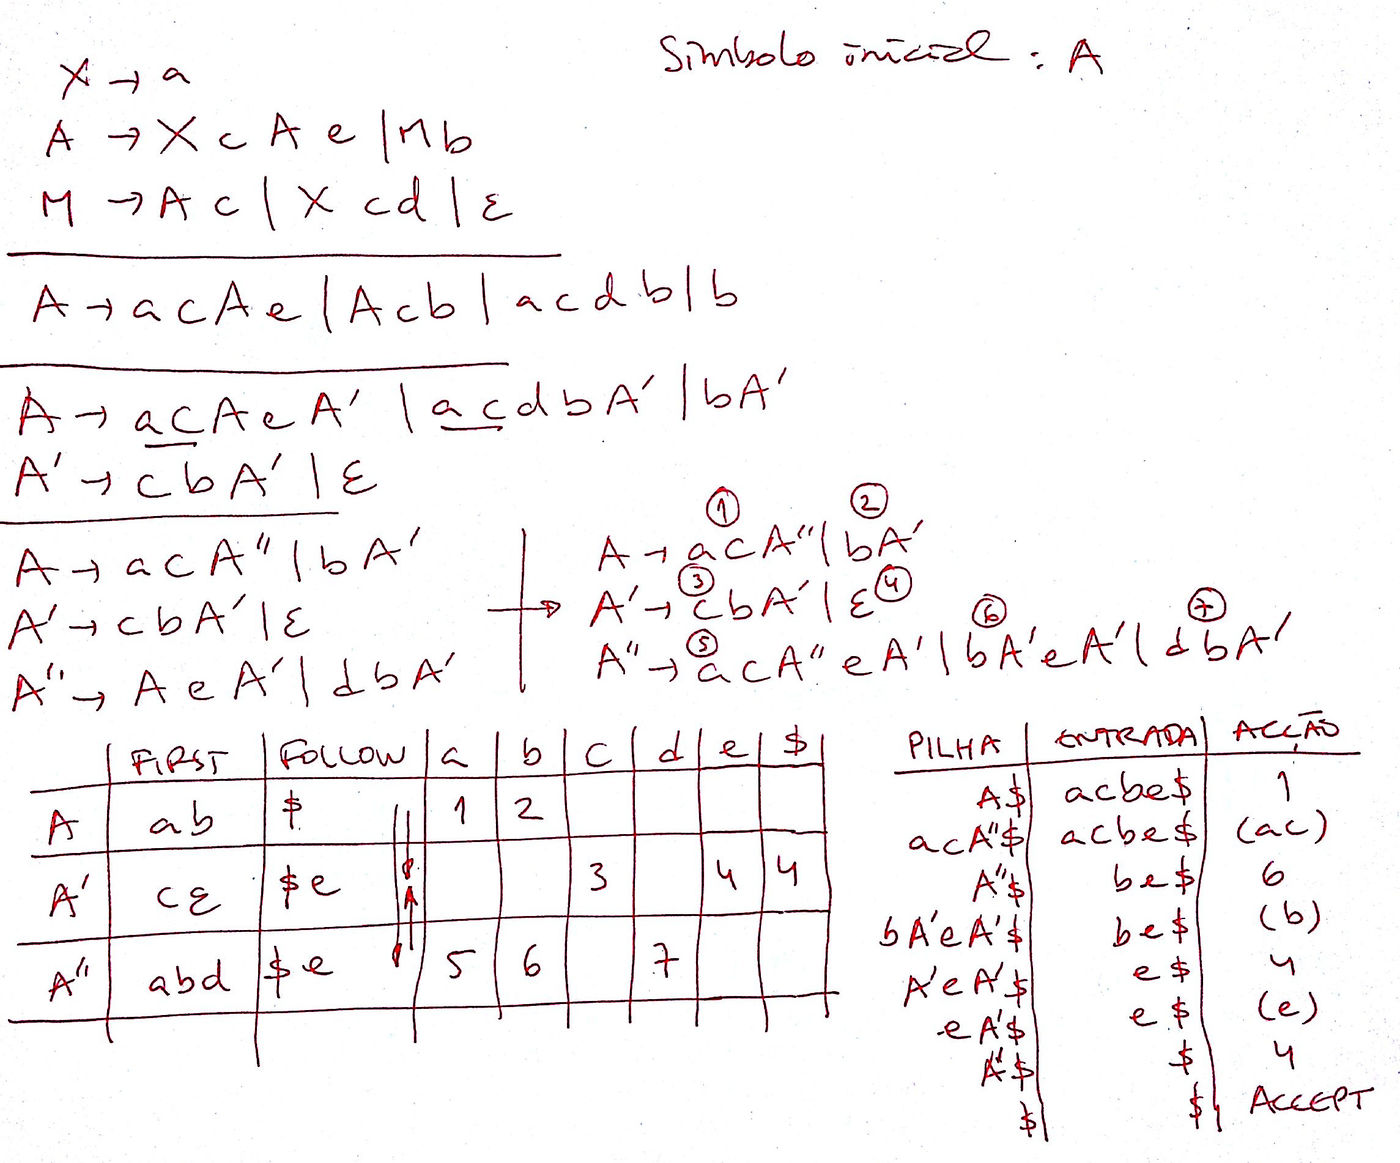 Símbolo inicial : A
X → a
A → X c A e | M b
M → A c | X c d | ε
A → a c A e | A c b | a c d b | b
A → a c A e A' | a c d b A' | b A'
A' → c b A' | ε
A → a c A'' | b A'
A' → c b A' | ε
A'' → A e A' | d b A'
① ②
A → a c A'' | b A'
③ ④
A' → c b A' | ε
⑤ ⑥ ⑦
A'' → a c A'' e A' | b A' e A' | d b A'
FIRST FOLLOW a b c d e $
A ab $ 1 2
A' cε $e 3 4 4
A'' abd $e 5 6 7
PILHA ENTRADA ACÇÃO
A$ acbe$ 1
acA''$ acbe$ (ac)
A''$ be$ 6
bA'eA'$ be$ (b)
A'eA'$ e$ 4
eA'$ e$ (e)
A'$ $ 4
$ $ ACCEPT